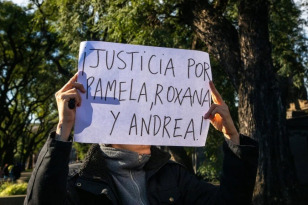 ¡JUSTICIA POR
PAMELA, ROXANA
Y ANDREA!